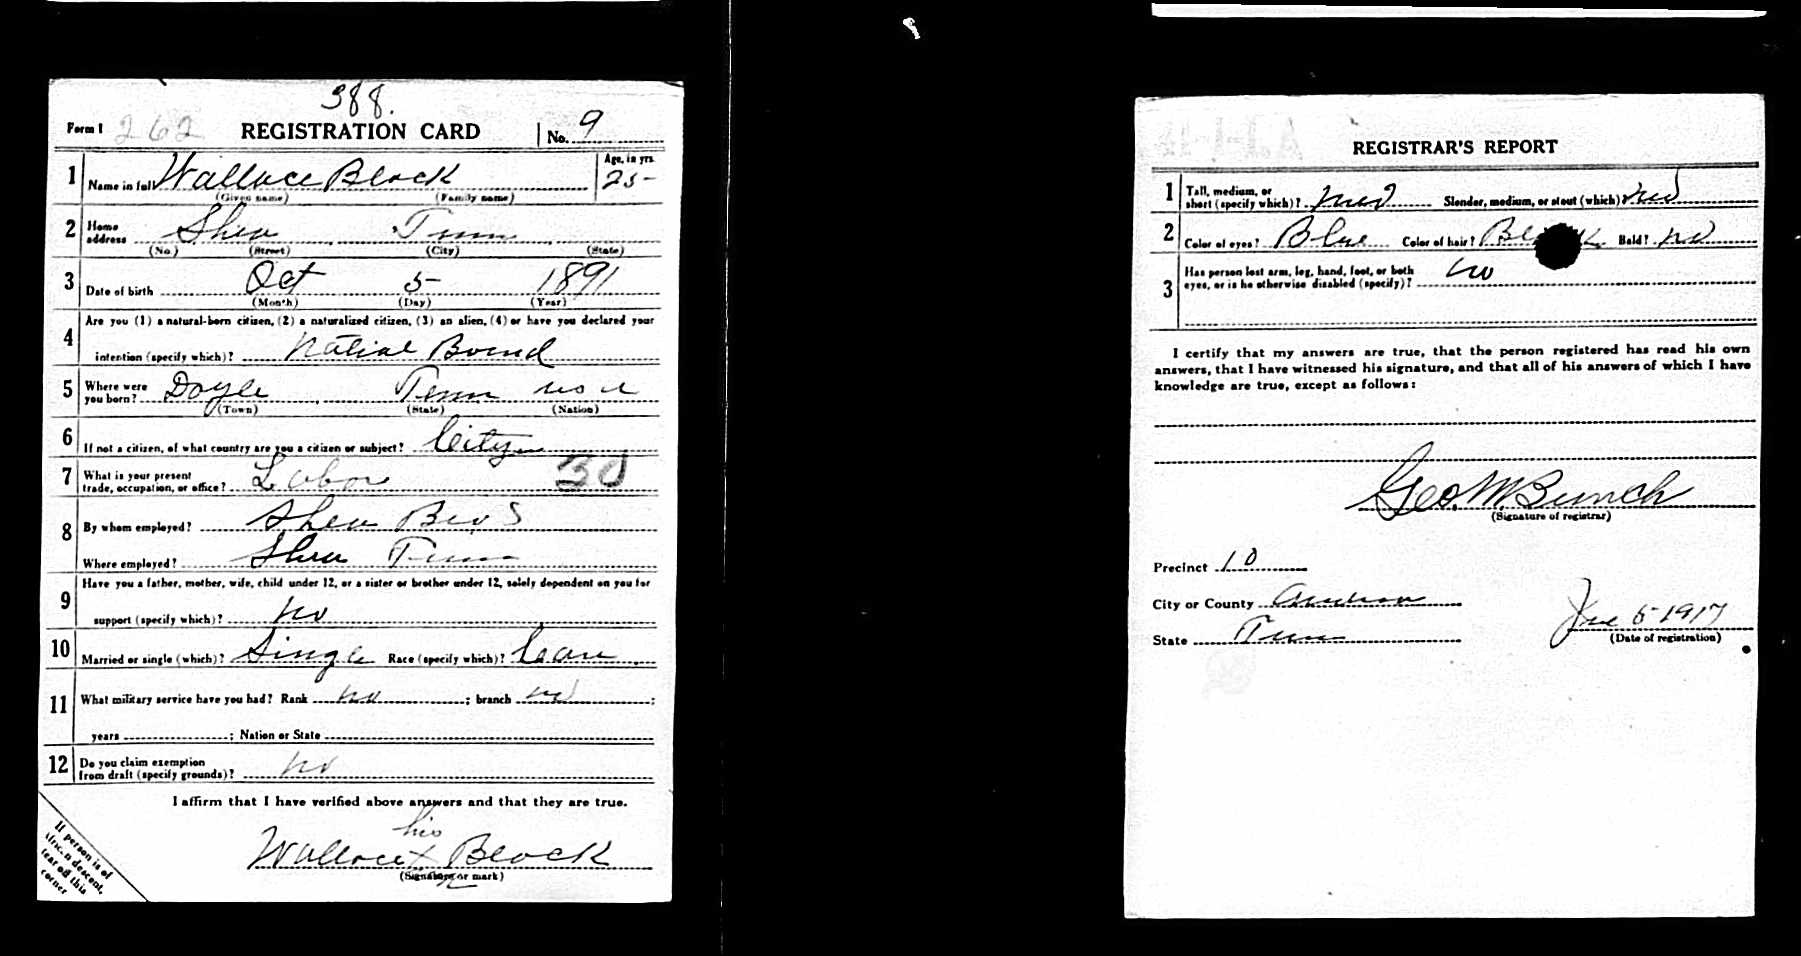 388.
Form 1 262 REGISTRATION CARD No. 9
1 Name in full Wallace Block Age, in yrs. 25
(Given name) (Family name)
2 Home address Shea Tenn
(No.) (Street) (City) (State)
3 Date of birth Oct 5 1891
(Month) (Day) (Year)
4 Are you (1) a natural-born citizen, (2) a naturalized citizen, (3) an alien, (4) or have you declared your
intention (specify which)? Natial Bornd
5 Where were you born? Doyle Tenn
(Town) (State) (Nation)
6 If not a citizen, of what country are you a citizen or subject?
7 What is your present trade, occupation, or office? Labor 30
8 By whom employed? Shea Bros
Where employed? Shea Tenn
9 Have you a father, mother, wife, child under 12, or a sister or brother under 12, solely dependent on you for
support (specify which)? no
10 Married or single (which)? Single Race (specify which)? Cau
11 What military service have you had? Rank no ; branch no ;
years ; Nation or State
12 Do you claim exemption from draft (specify grounds)? no
I affirm that I have verified above answers and that they are true.
his
Wallace X Block
(Signature or mark)
If person is of
African descent,
tear off this
corner
REGISTRAR'S REPORT
1 Tall, medium, or short (specify which)? med Slender, medium, or stout (which)? med
2 Color of eyes? Blue Color of hair? Black Bald? no
3 Has person lost arm, leg, hand, foot, or both
eyes, or is he otherwise disabled (specify)? no
I certify that my answers are true, that the person registered has read his own
answers, that I have witnessed his signature, and that all of his answers of which I have
knowledge are true, except as follows:
Geo. M. Bunch
(Signature of registrar)
Precinct 10
City or County Anderson
State Tenn June 5 1917
(Date of registration)